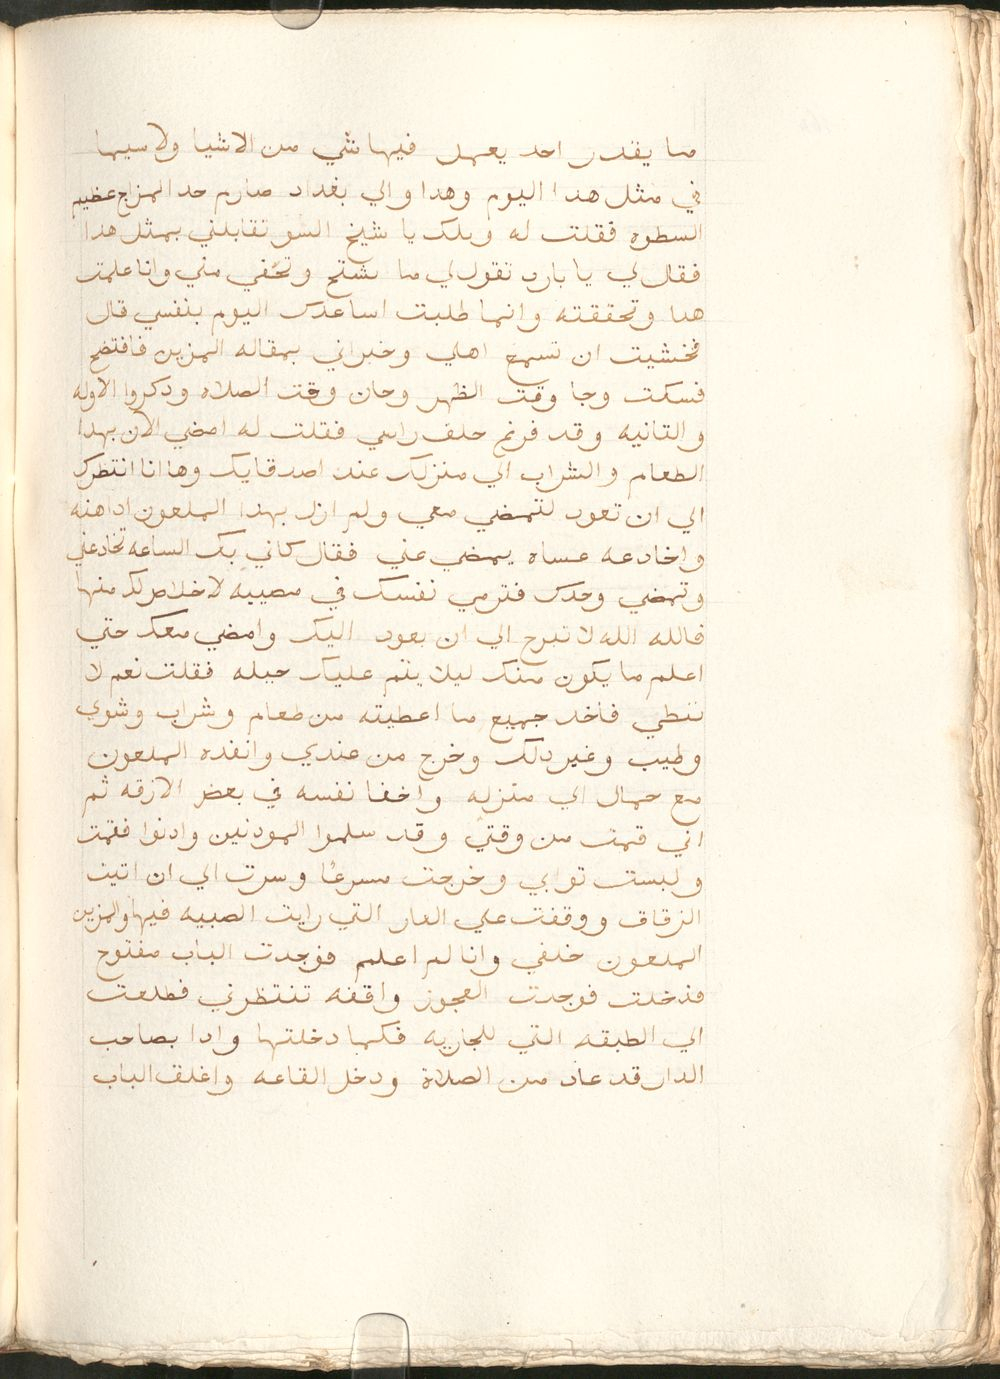 ما يقدر احد يعمل فيها شي من الاشيا ولا سيما
في مثل هدا اليوم وهدا والي بغداد صارم حد المزاج عظيم
السطوه فقلت له ويلك يا شيخ السو تقابلني بمثل هدا
فقال لي يا بارد تقول لي ما تستح وتخفي مني وانا علمت
هدا وتحققته وانما طلبت اساعدك اليوم بنفسي قال
فخشيت ان تسمع اهلي وخبراني بمقاله المزين فافتضح
فسكت وجا وقت الظهر وحان وقت الصلاه ودكروا الاوله
والتانيه وقد فرغ حلف راسي فقلت له امضي الان بهدا
الطعام والشراب الي منزلك عند اصدقايك وها انا انتظرك
الي ان تعود لتمضي معي ولم ازل بهدا الملعون اداهنه
واخادعه عساه يمضي عني فقال كاني بك الساعه تخادعني
وتمضي وحدك فترمي نفسك في مصيبه لا خلاص لك منها
فالله الله لا تبرح الي ان بعود اليك وامضي معك حتي
اعلم ما يكون منك ليلا يتم عليك حيله فقلت نعم لا
تبطي فاخد جميع ما اعطيته من طعام وشراب وشوي
وطيب وغير دلك وخرج من عندي وانفده الملعون
مع حمال الي منزله واخفا نفسه في بعض الازقه ثم
اني قمت من وقتي وقد سلموا المودنين وادنوا فقمت
ولبست توابي وخرجت مسرعًا وسرت الي ان اتيت
الزقاق ووقفت علي الدار التي رايت الصبيه فيها والمزين
الملعون خلفي وانا لم اعلم فوجدت الباب مفتوح
فدخلت فوجدت العجوز واقفه تنتظرني فطلعت
الي الطبقه التي للجاريه فكما دخلتها وادا بصاحب
الدار قد عاد من الصلاة ودخل القاعه واغلق الباب